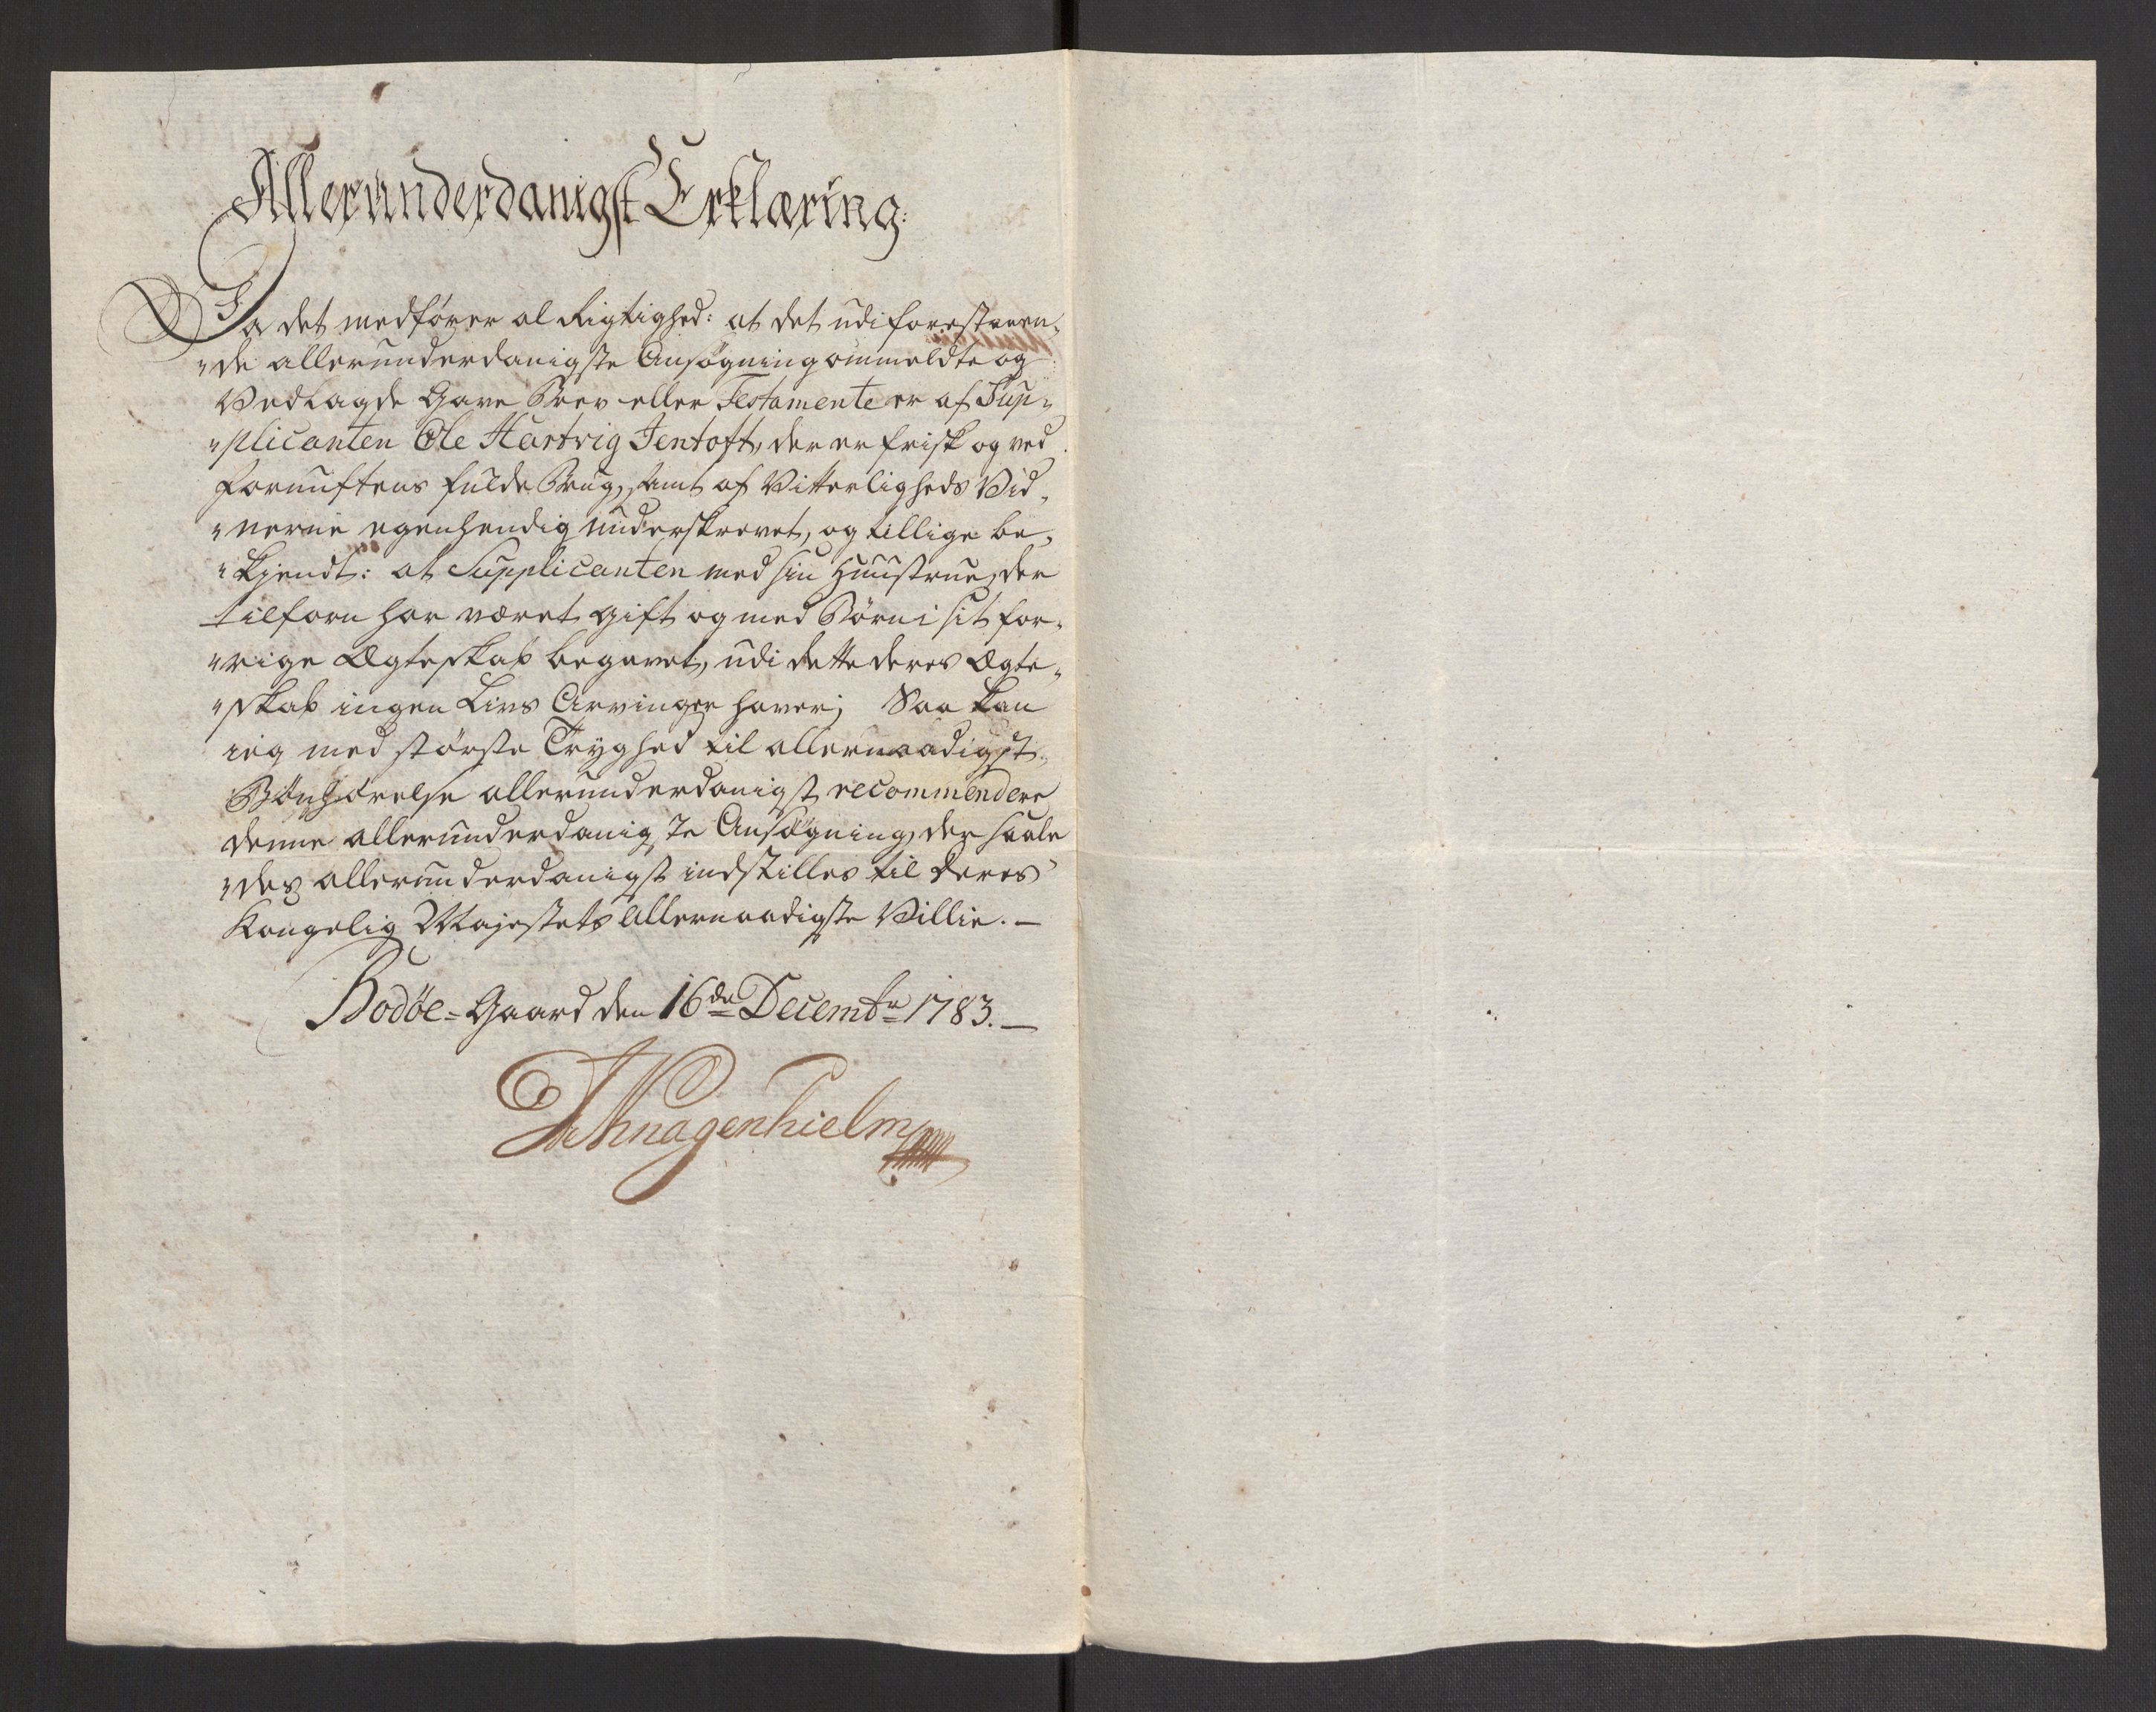 Allerunderdanigst Erklæring:
Da det medfører al Rigtighed: at det udi forestaaen„
„de allerunderdanigste Ansøgning ommeldte og
Vedlagde Gave Brev eller Testamente er af Sup„
„plicanten Ole Hartvig Jentoft, der er frisk og ved
Fornuftens fulde Brug, samt af Vitterligheds Vid„
„nerne egenhendig underskrevet, og tillige be„
„kjendt: at Supplicanten med sin Huustrue, der
tilforn har været gift og med Børn i sit for„
„rige Ægteskab begavet, udi dette deres Ægte„
„skab ingen Livs Arvinger haver; Saa kan
ieg med største Tryghed til allernaadigst
Bønhørelse allerunderdanigst recommendere
denne allerunderdanigste Ansøgning, der saale
„des allerunderdanigst indstilles til Deres
Kongelig Majestets Allernaadigste Villie. —
Bodøe-Gaard den 16de Decembr 1783. —
Knagenhielm